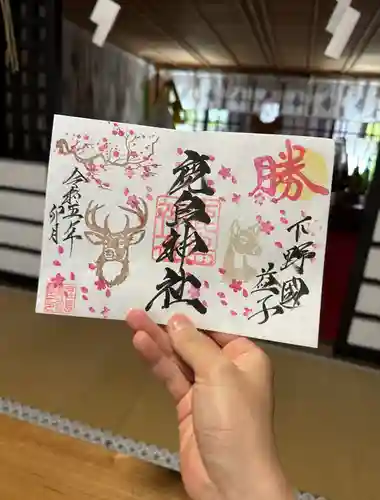 勝
下野國
益子
鹿島神社
令和五年
卯月